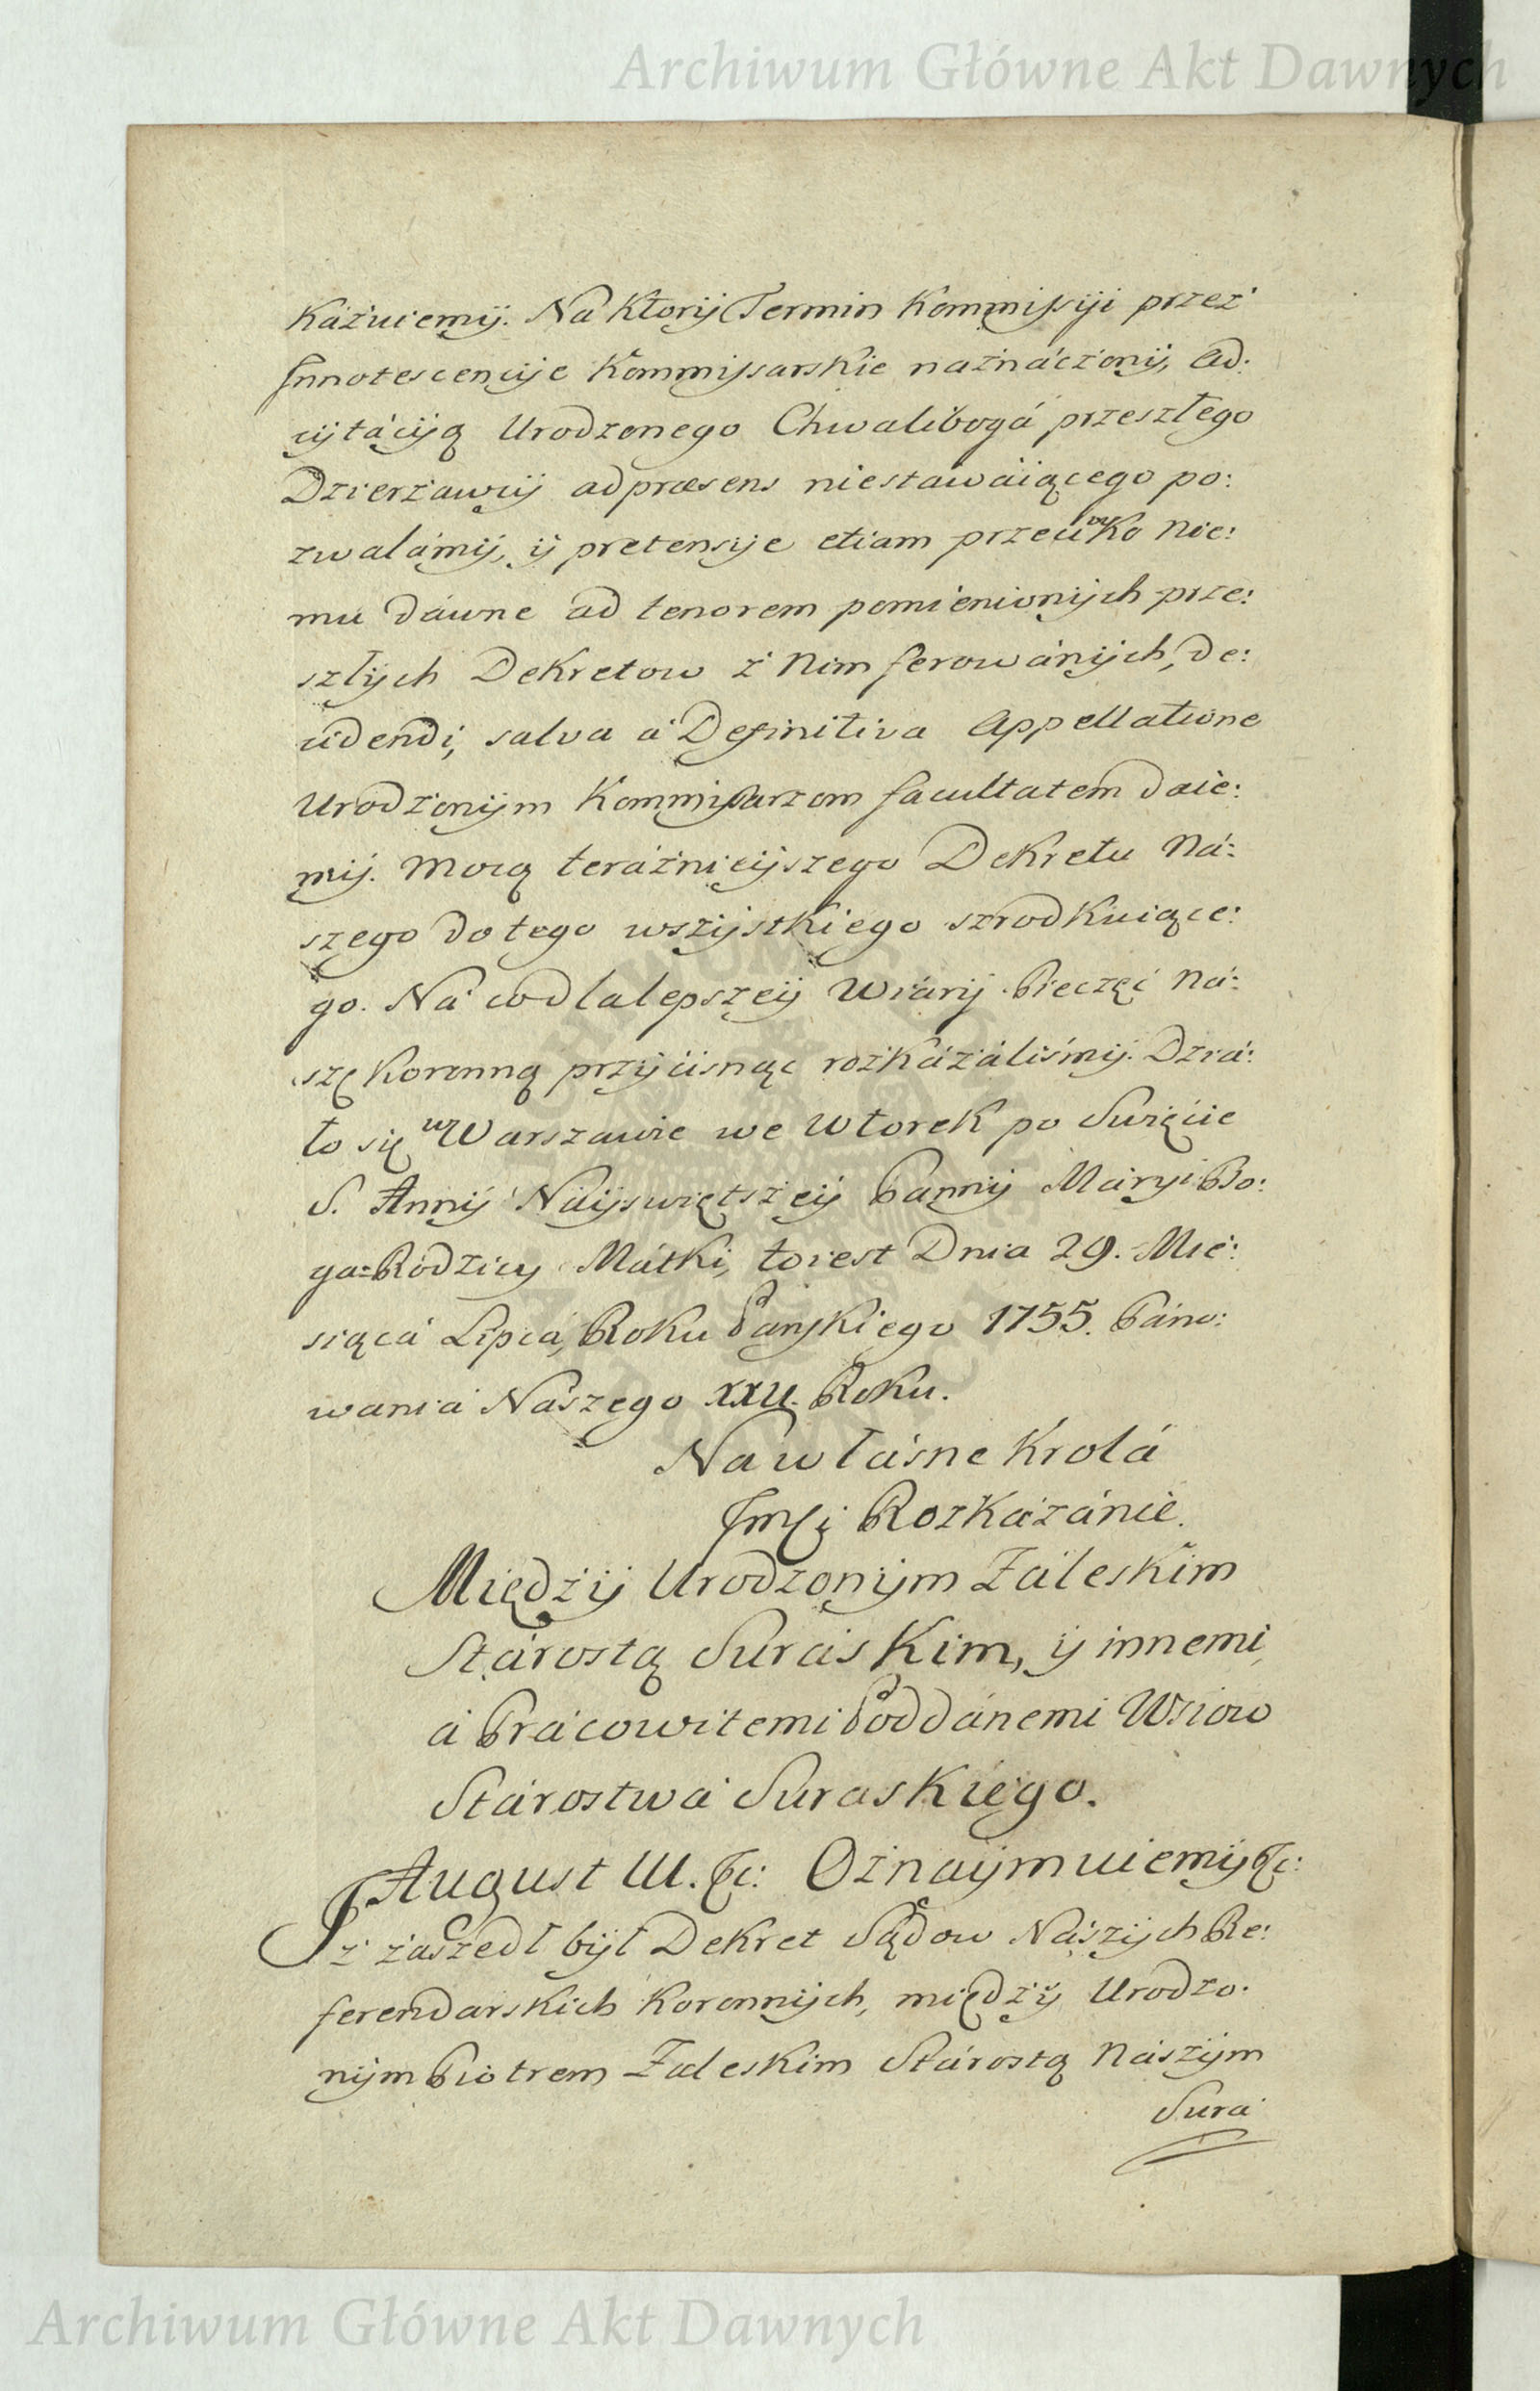 Archiwum Główne Akt Dawnych
Káżuiemy. Na ktory Termin Kommissyi przez
Innotescencyje Kommissarskie náznáczony, Ad:
cytácyą Urodzonego Chwalibogá przeszłego
Dzierżawcy ad præsens niestawáiącego po:
zwalámy, y pretensye etiam przeciwko Nie:
mu dáwne ad tenorem pomienionych prze:
szłych Dekretow z Nim ferowánych, de:
cidendi, salva á Definitiva Appellatione
Urodzonym Kommissarzom facultatem daie:
my. Mocą teráźnieyszego Dekretu Ná:
szego do tego wszystkiego szrodkuiące:
go. Ná co dla lepszey Wiáry Pieczęć Ná:
szę Koronną przycisnąc rozkázáliśmy. Dziá:
ło się w Warszawie we Wtorek po Swięcie
S. Anny Náyswiętszey Panny Máryi Bo:
ga=Rodzicy Mátki, to iest Dnia 29. Mie:
siącá Lipcá, Roku Pańskiego 1755. Páno:
wania Nászego XXII. Roku.
Na włásne Krolá
Jmści Rozkázánie.
Między Urodzonym Záleskim
Stárostą Suráskim, y innemi,
á Prácowitemi Poddánemi Wsiow
Stárostwá Suraskiego.
August III. &c: Oznáymuiemy &c:
Iż zaszedł był Dekret Sądow Nászych Re:
ferendarskich Koronnych, między Urodzo:
nym Piotrem Zaleskim Stárostą Nászym
Sura
Archiwum Główne Akt Dawnych